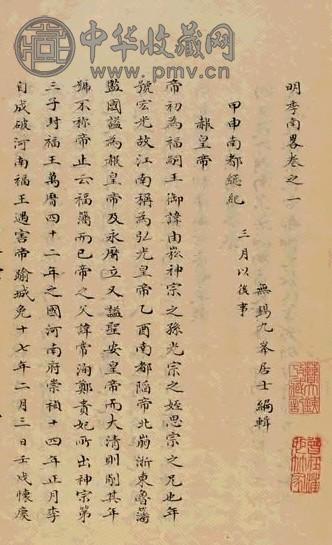 中华收藏网
www.pmv.cn
明季南畧卷之一
無錫九峯居士編輯
甲申南都總紀 三月以後事
赧皇帝
帝初為福嗣王御諱由崧神宗之孫光宗之姪思宗之兄也年
號宏光故江南稱為弘光皇帝乙酉南都陷帝北崩浙東魯藩
監國謚為赧皇帝及永曆立又謚聖安皇帝而大清則削其年
號不称帝止云福藩而已帝之父諱常洵鄭貴妃所出神宗第
三子封福王萬曆四十二年之國河南府崇禎十四年正月李
自成破河南福王遇害帝踰城免十七年二月三日壬戌懷慶